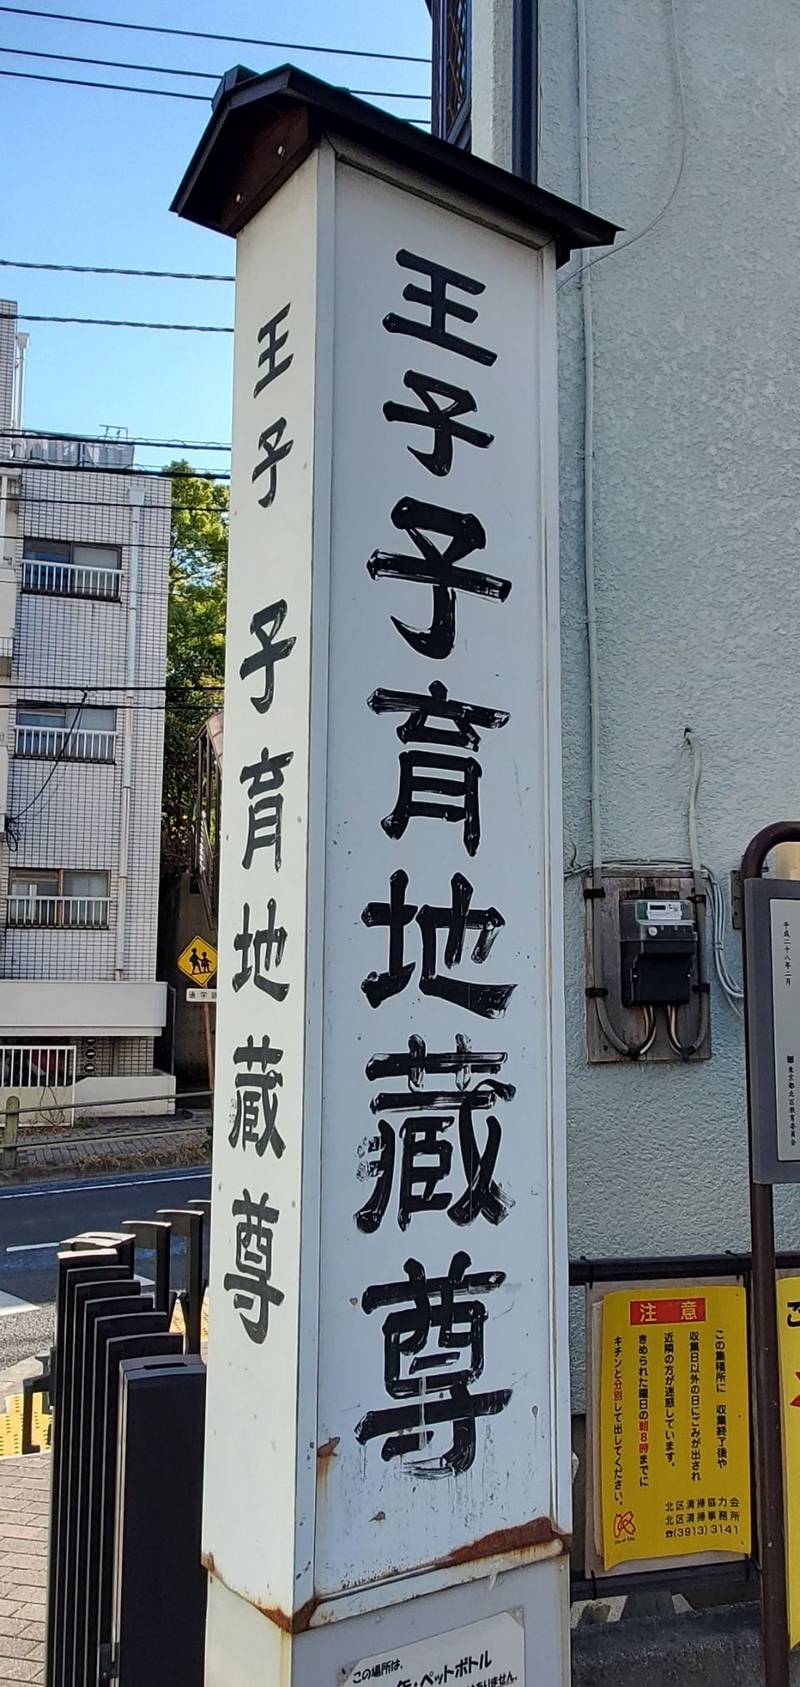 王子子育地蔵尊
王子 子育地蔵尊
注意
この集積所に 収集終了後や
収集日以外の日にごみが出され
近隣の方が迷惑しています。
きめられた曜日の朝8時までに
キチンと分別して出してください。
北区清掃協力会
北区清掃事務所
☎(3913)3141
平成二十八年二月
東京都北区教育委員会
この場所は、
缶・ペットボトル
ありません。